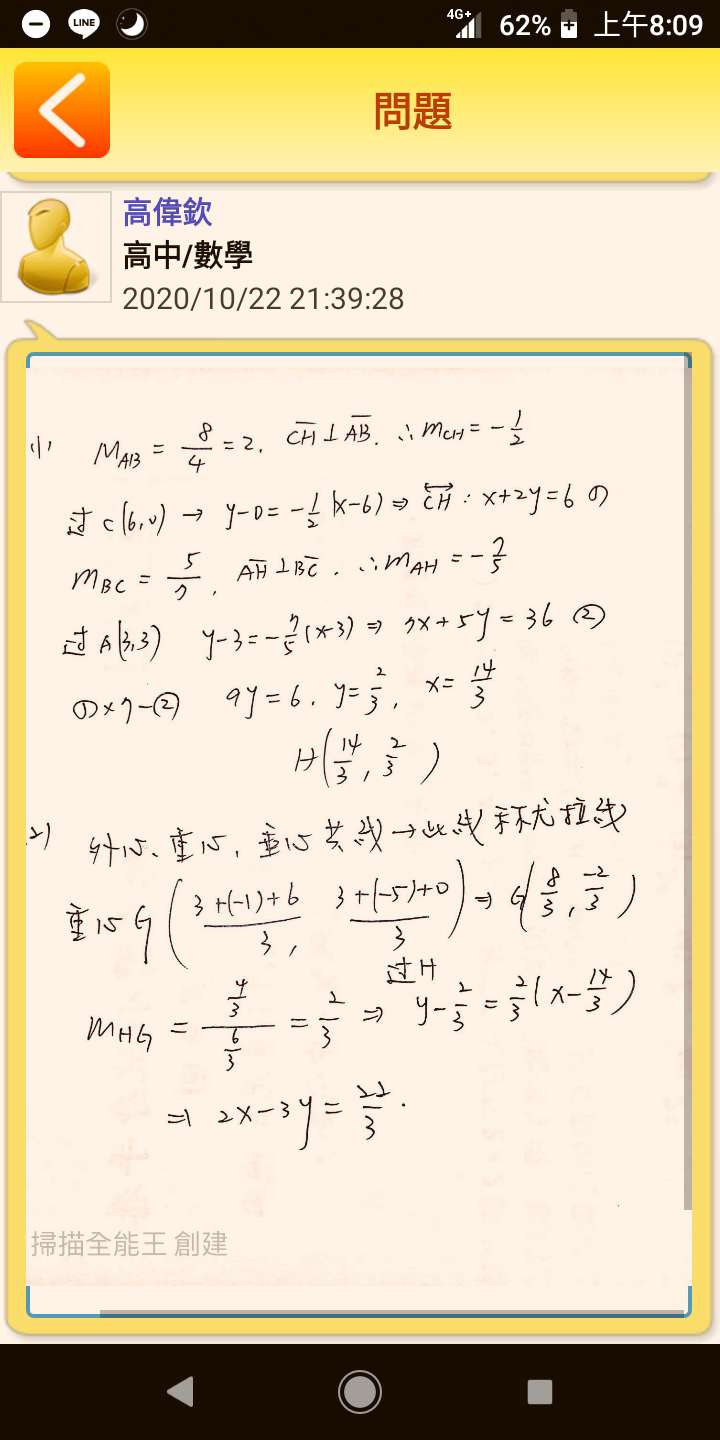 LINE 4G+ 62% 上午8:09
問題
高偉欽
高中/數學
2020/10/22 21:39:28
(1) M_AB = 8/4 = 2. CH⊥AB. ∴m_CH = -1/2
过 C(6,0) → y-0=-1/2(x-6) ⇒ CH : x+2y=6 ①
m_BC = 5/7, AH⊥BC. ∴m_AH = -7/5
过 A(3,3) y-3=-7/5(x-3) ⇒ 7x+5y=36 ②
①×7-② 9y=6. y=2/3, x=14/3
H(14/3, 2/3)
2) 外心、重心、垂心共线→此线 尤拉线
重心G(3+(-1)+6/3, 3+(-5)+0/3) ⇒ G(8/3, -2/3)
过H
m_HG = 4/3/6/3 = 2/3 ⇒ y-2/3=2/3(x-14/3)
⇒ 2x-3y=22/3.
掃描全能王 創建